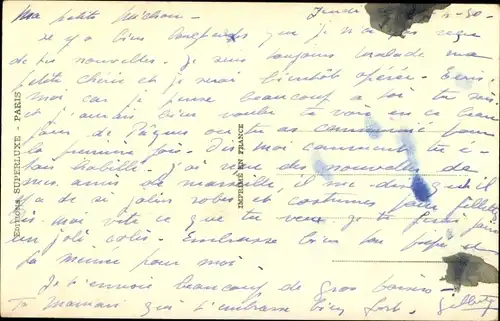 Ma petite Michou - Jeudi -50-
il y a bien longtemps que je n'ai reçu
de tes nouvelles. Je suis toujours malade ma
petite chérie et je serai bientôt opérée. Ecris
moi car je pense beaucoup à toi tu sais
et j'aurais bien voulu te voir en ce beau
jour de Pâques où tu as communié pour
la première fois. Dis moi comment tu é-
tais habillée. J'ai reçu des nouvelles de
mes amis de Marseille il me dise qu'il
y a de si jolies robes et costumes pour fillettes
Dis-moi vite ce que tu veux je te ferai faire
un joli colis. Embrasse bien ton pépé et
ta mémé pour moi.
Je t'envoie beaucoup de gros baisers
Ta maman qui t'embrasse bien fort. Gilberte
EDITIONS SUPERLUXE - PARIS
IMPRIMÉ EN FRANCE